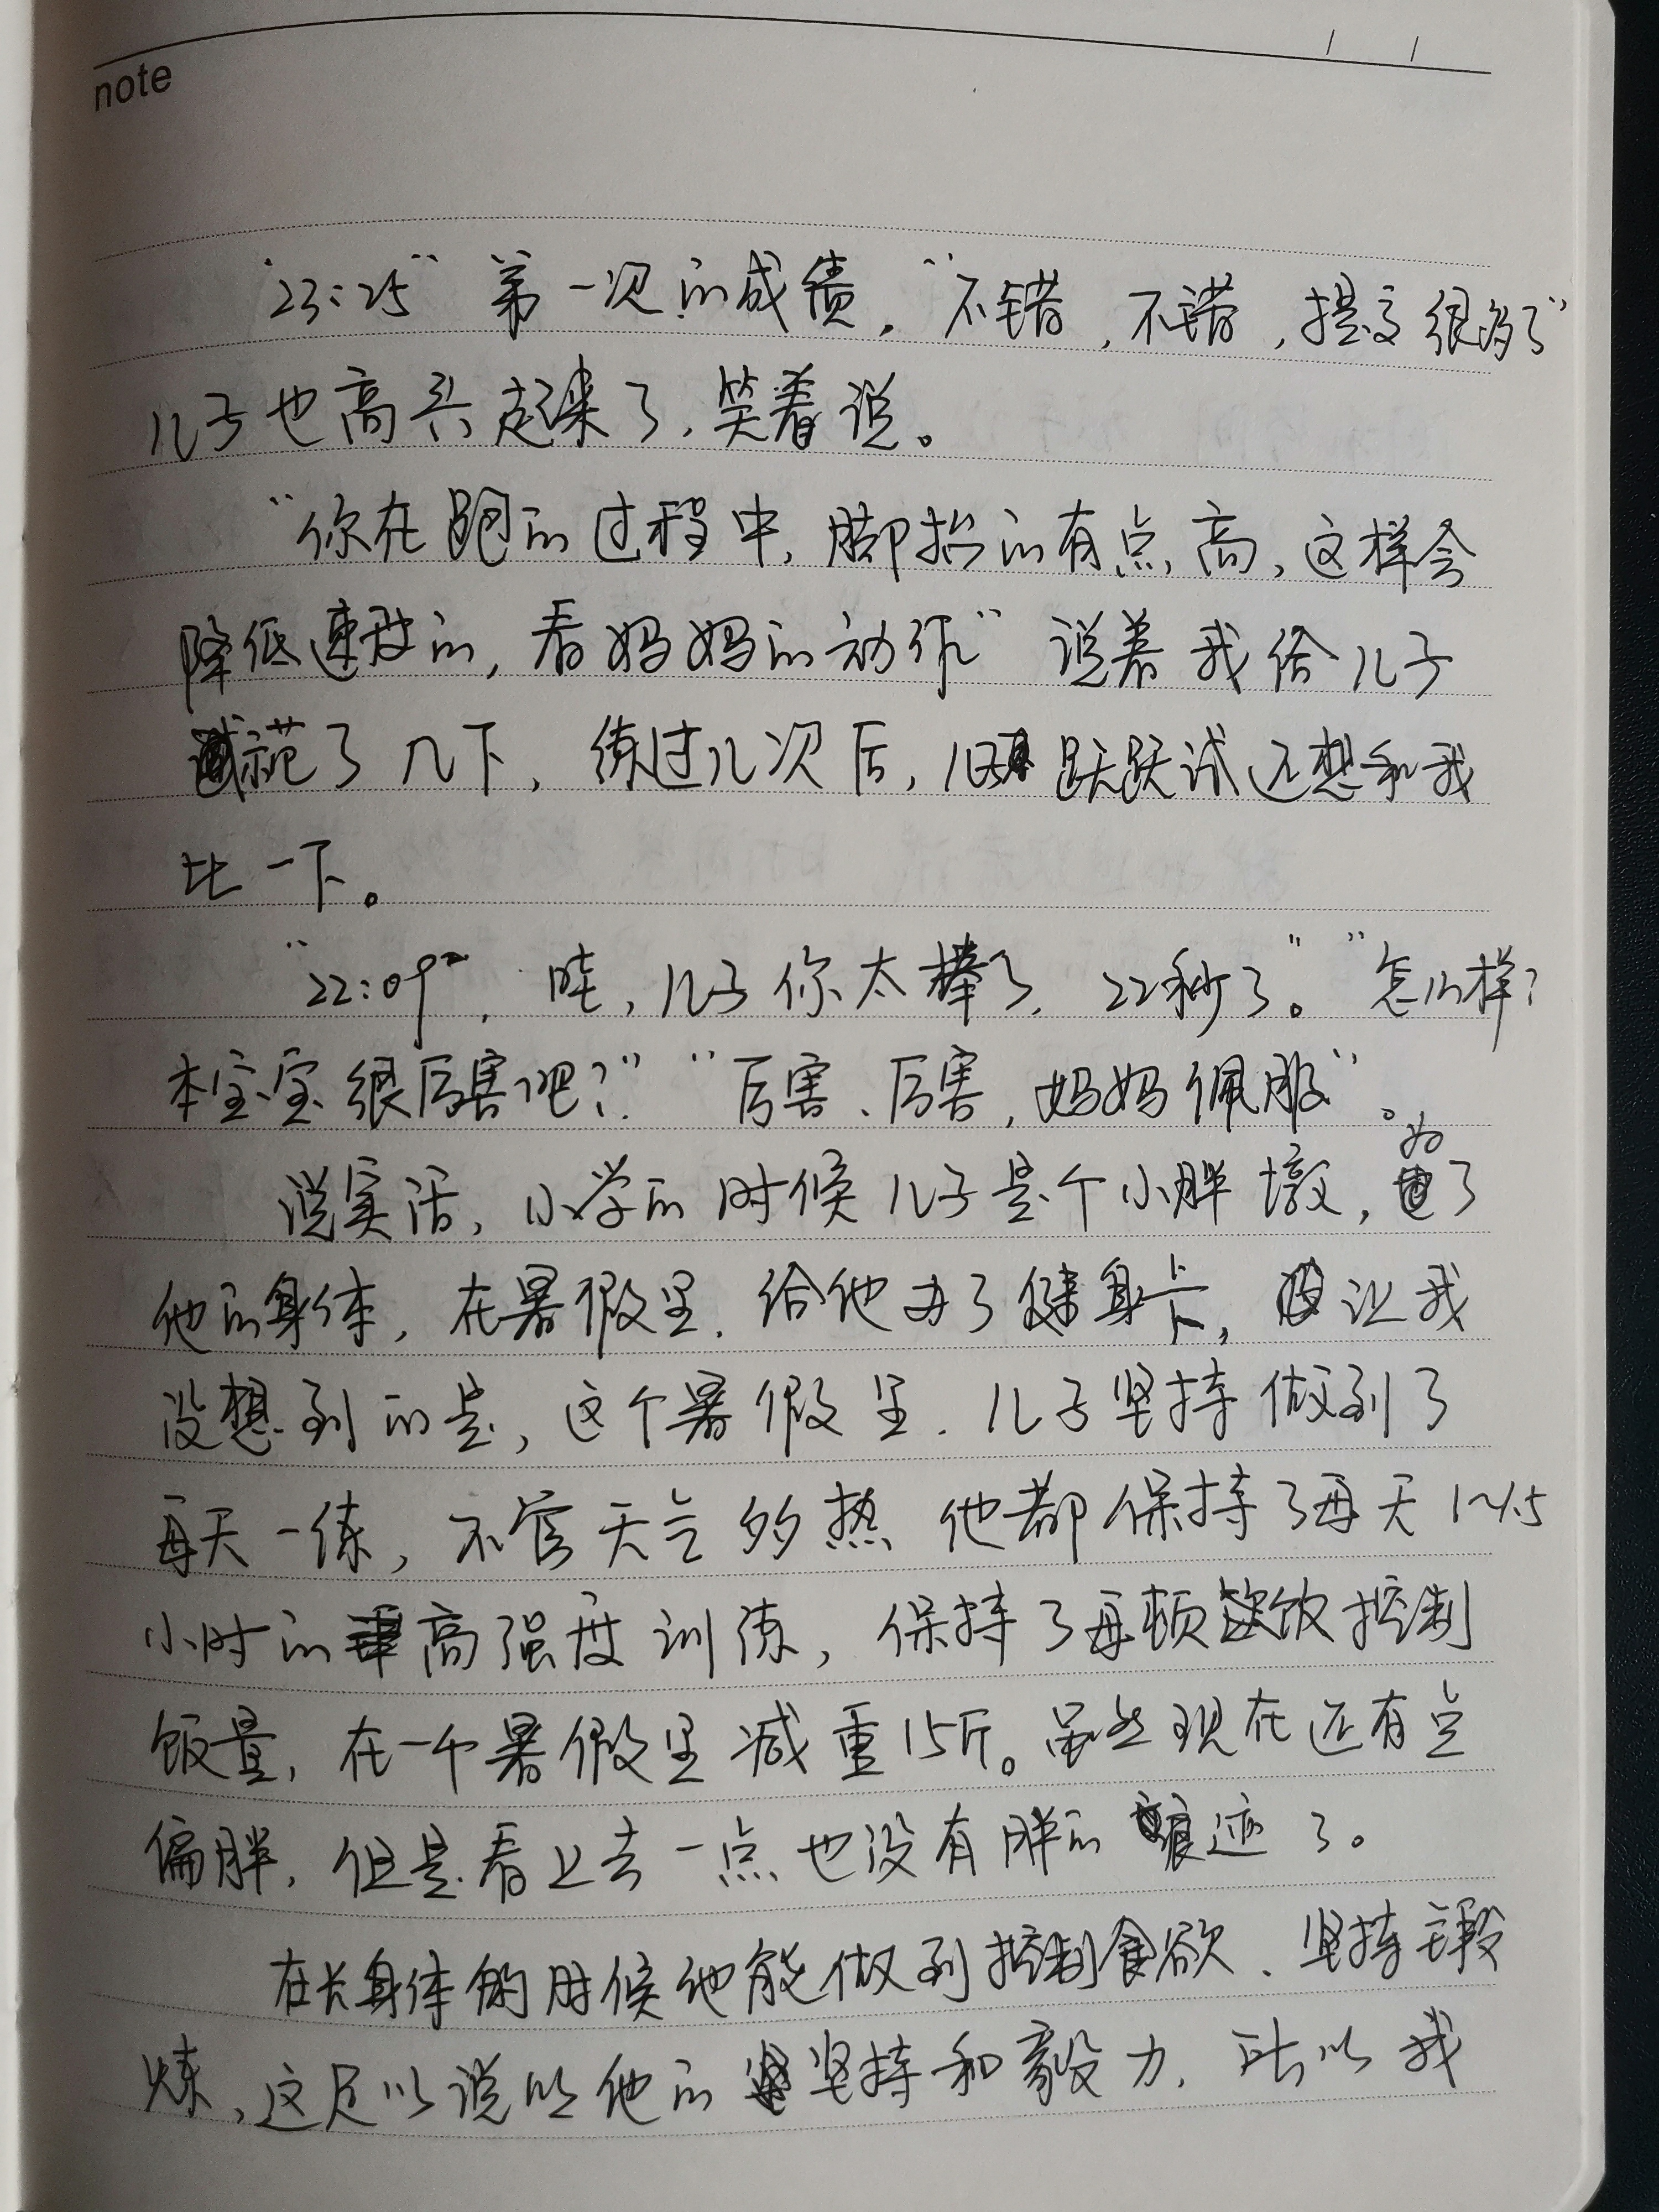 note
"23:25" 第一次的成绩，"不错，不错，提高很多了"
儿子也高兴起来了，笑着说。
"你在跑的过程中，脚抬的有点高，这样会
降低速度的，看妈妈的动作" 说着我给儿子
示范了几下，练过几次后，儿子 跃跃试还想和我
比一下。
"22:09"，哇，儿子你太棒了，22秒了。" "怎么样？
本宝宝很厉害吧？" "厉害、厉害，妈妈佩服"。
说实话，小学的时候儿子是个小胖墩，为了
他的身体，在暑假里，给他办了健身卡，让我
没想到的是，这个暑假里，儿子坚持做到了
每天一练，不管天气多热 他都保持了每天1~1.5
小时的高强度训练，保持了每顿饭控制
饭量，在一个暑假里减重15斤。虽然现在还有点
偏胖，但是看上去一点也没有胖的痕迹了。
在长身体的时候他能做到控制食欲、坚持锻
炼，这足以说明他的坚持和毅力，所以我